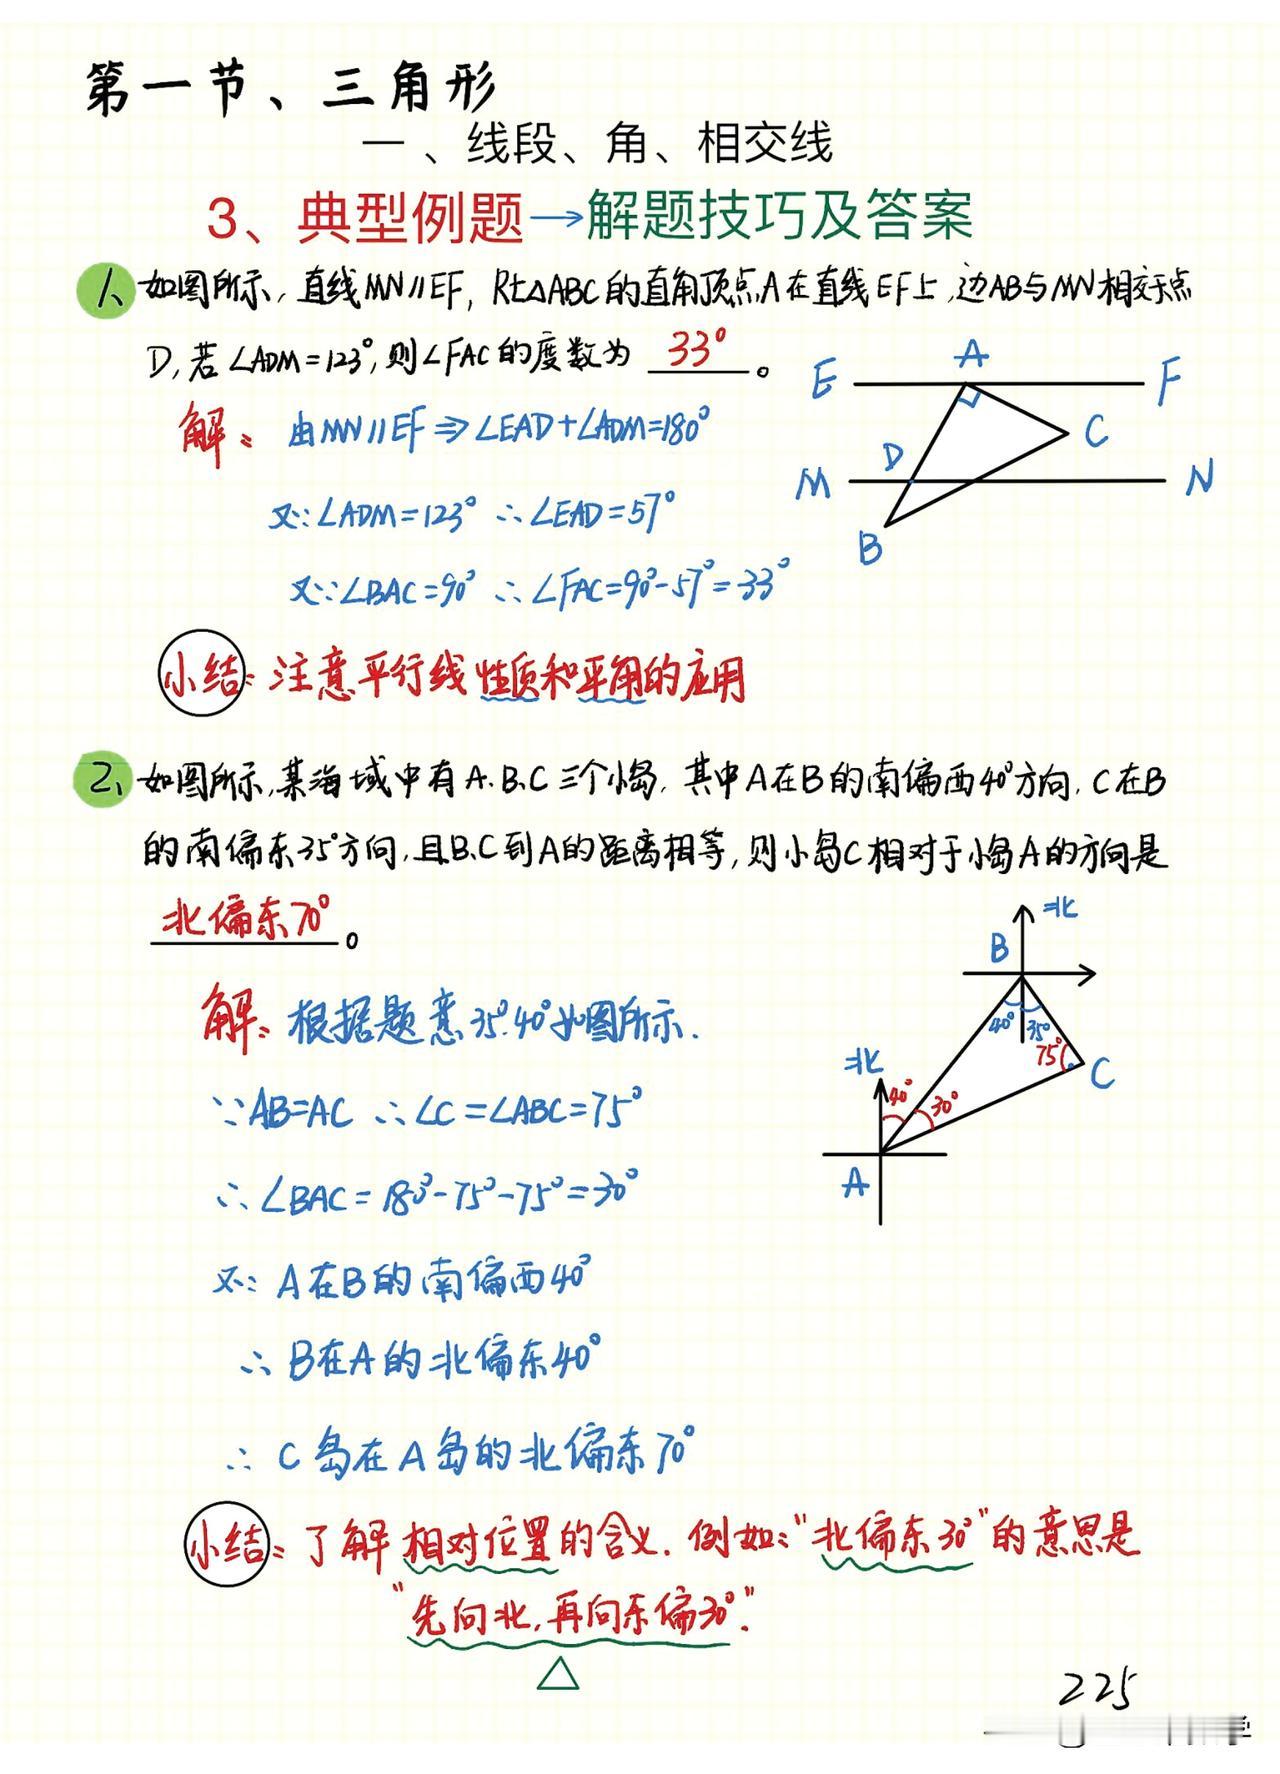 第一节、三角形
一、线段、角、相交线
3、典型例题→解题技巧及答案
1、如图所示,直线MN∥EF,Rt△ABC的直角顶点A在直线EF上,边AB与MN相交于点
D,若∠ADM=123°,则∠FAC的度数为 33°。
解: 由MN∥EF⇒∠EAD+∠ADM=180°
又∵∠ADM=123° ∴∠EAD=57°
又∵∠BAC=90° ∴∠FAC=90°-57°=33°
E A F
C
D
M N
B
小结:注意平行线性质和平角的应用
2、如图所示,某海域中有A.B.C三个小岛,其中A在B的南偏西40°方向,C在B
的南偏东35°方向,且B.C到A的距离相等,则小岛C相对于小岛A的方向是
北偏东70°。
解:根据题意35°.40°如图所示.
∵AB=AC ∴∠C=∠ABC=75°
∴∠BAC=180°-75°-75°=30°
又∵A在B的南偏西40°
∴B在A的北偏东40°
∴C岛在A岛的北偏东70°
北
B
40° 35°
75°
C
北
40° 30°
A
小结:了解相对位置的含义.例如:"北偏东30°"的意思是
"先向北,再向东偏30°".
225